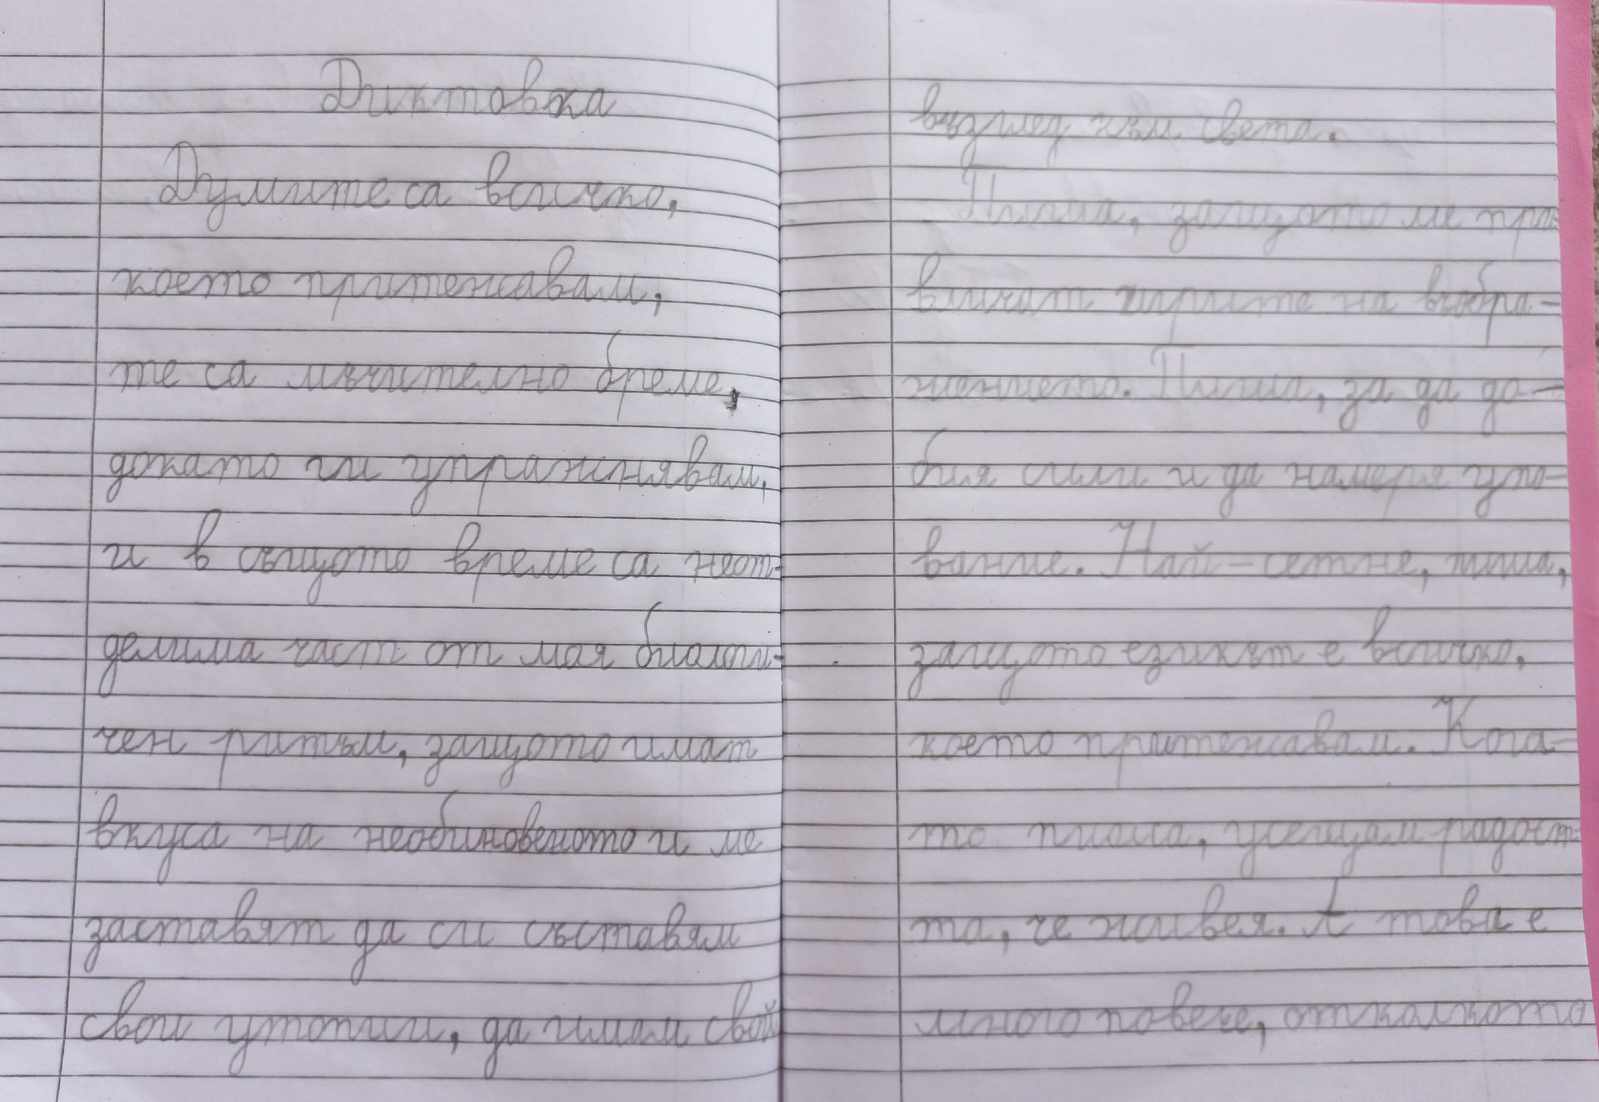 Диктовка
Думите са всичко,
което притежавам,
те са мъчително бреме,
докато ги упражнявам,
и в същото време са неот-
делима част от моя биологи-
чен ритъм, защото имат
вкуса на необикновеното и ме
заставят да си съставям
свои утопии, да имам свой
възглед към света.
Пиша, защото ме при-
вличат игрите на въобра-
жението. Пиша, за да до-
бия сили и да намеря упо-
вание. Най-сетне, пиша,
защото езикът е всичко,
което притежавам. Кога-
то пиша, усещам радост-
та, че живея. А това е
много повече, отколкото